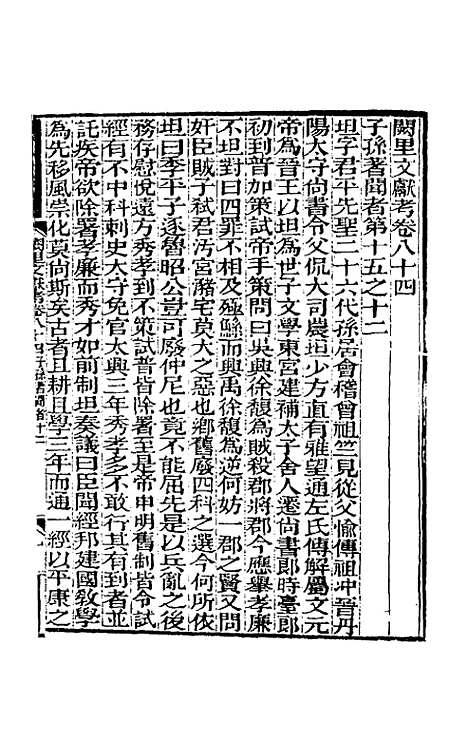 闕里文獻考卷八十四
子孫著聞者第十五之十二
坦字君平先聖二十六代孫居會稽曾祖竺見從父愉傳祖沖晉丹
陽太守尚書令父侃大司農坦少方直有雅望通左氏傳解屬文元
帝為晉王以坦為世子文學東宮建補太子舍人遷尚書郎時臺郎
初到普加策試帝手策問曰吳興徐馥為賊殺郡將郡今應舉孝廉
不坦對曰四罪不相及殛鯀而興禹徐馥為逆何妨一郡之賢又問
奸臣賊子弒君汚宮瀦宅莫大之惡也鄉舊廢四科之選今何所依
坦曰季平子逐魯昭公豈可廢仲尼也竟不能屈先是以兵亂之後
務存慰悅遠方秀孝到不策試普皆除署至是帝申明舊制皆令試
經有不中科刺史太守免官太興三年秀孝多不敢行其有到者並
託疾帝欲除署孝廉而秀才如前制坦奏議曰臣聞經邦建國敎學
為先移風崇化莫尚斯矣古者且耕且學三年而通一經以平康之
闕里文獻考卷八十四子孫著聞者十二
一